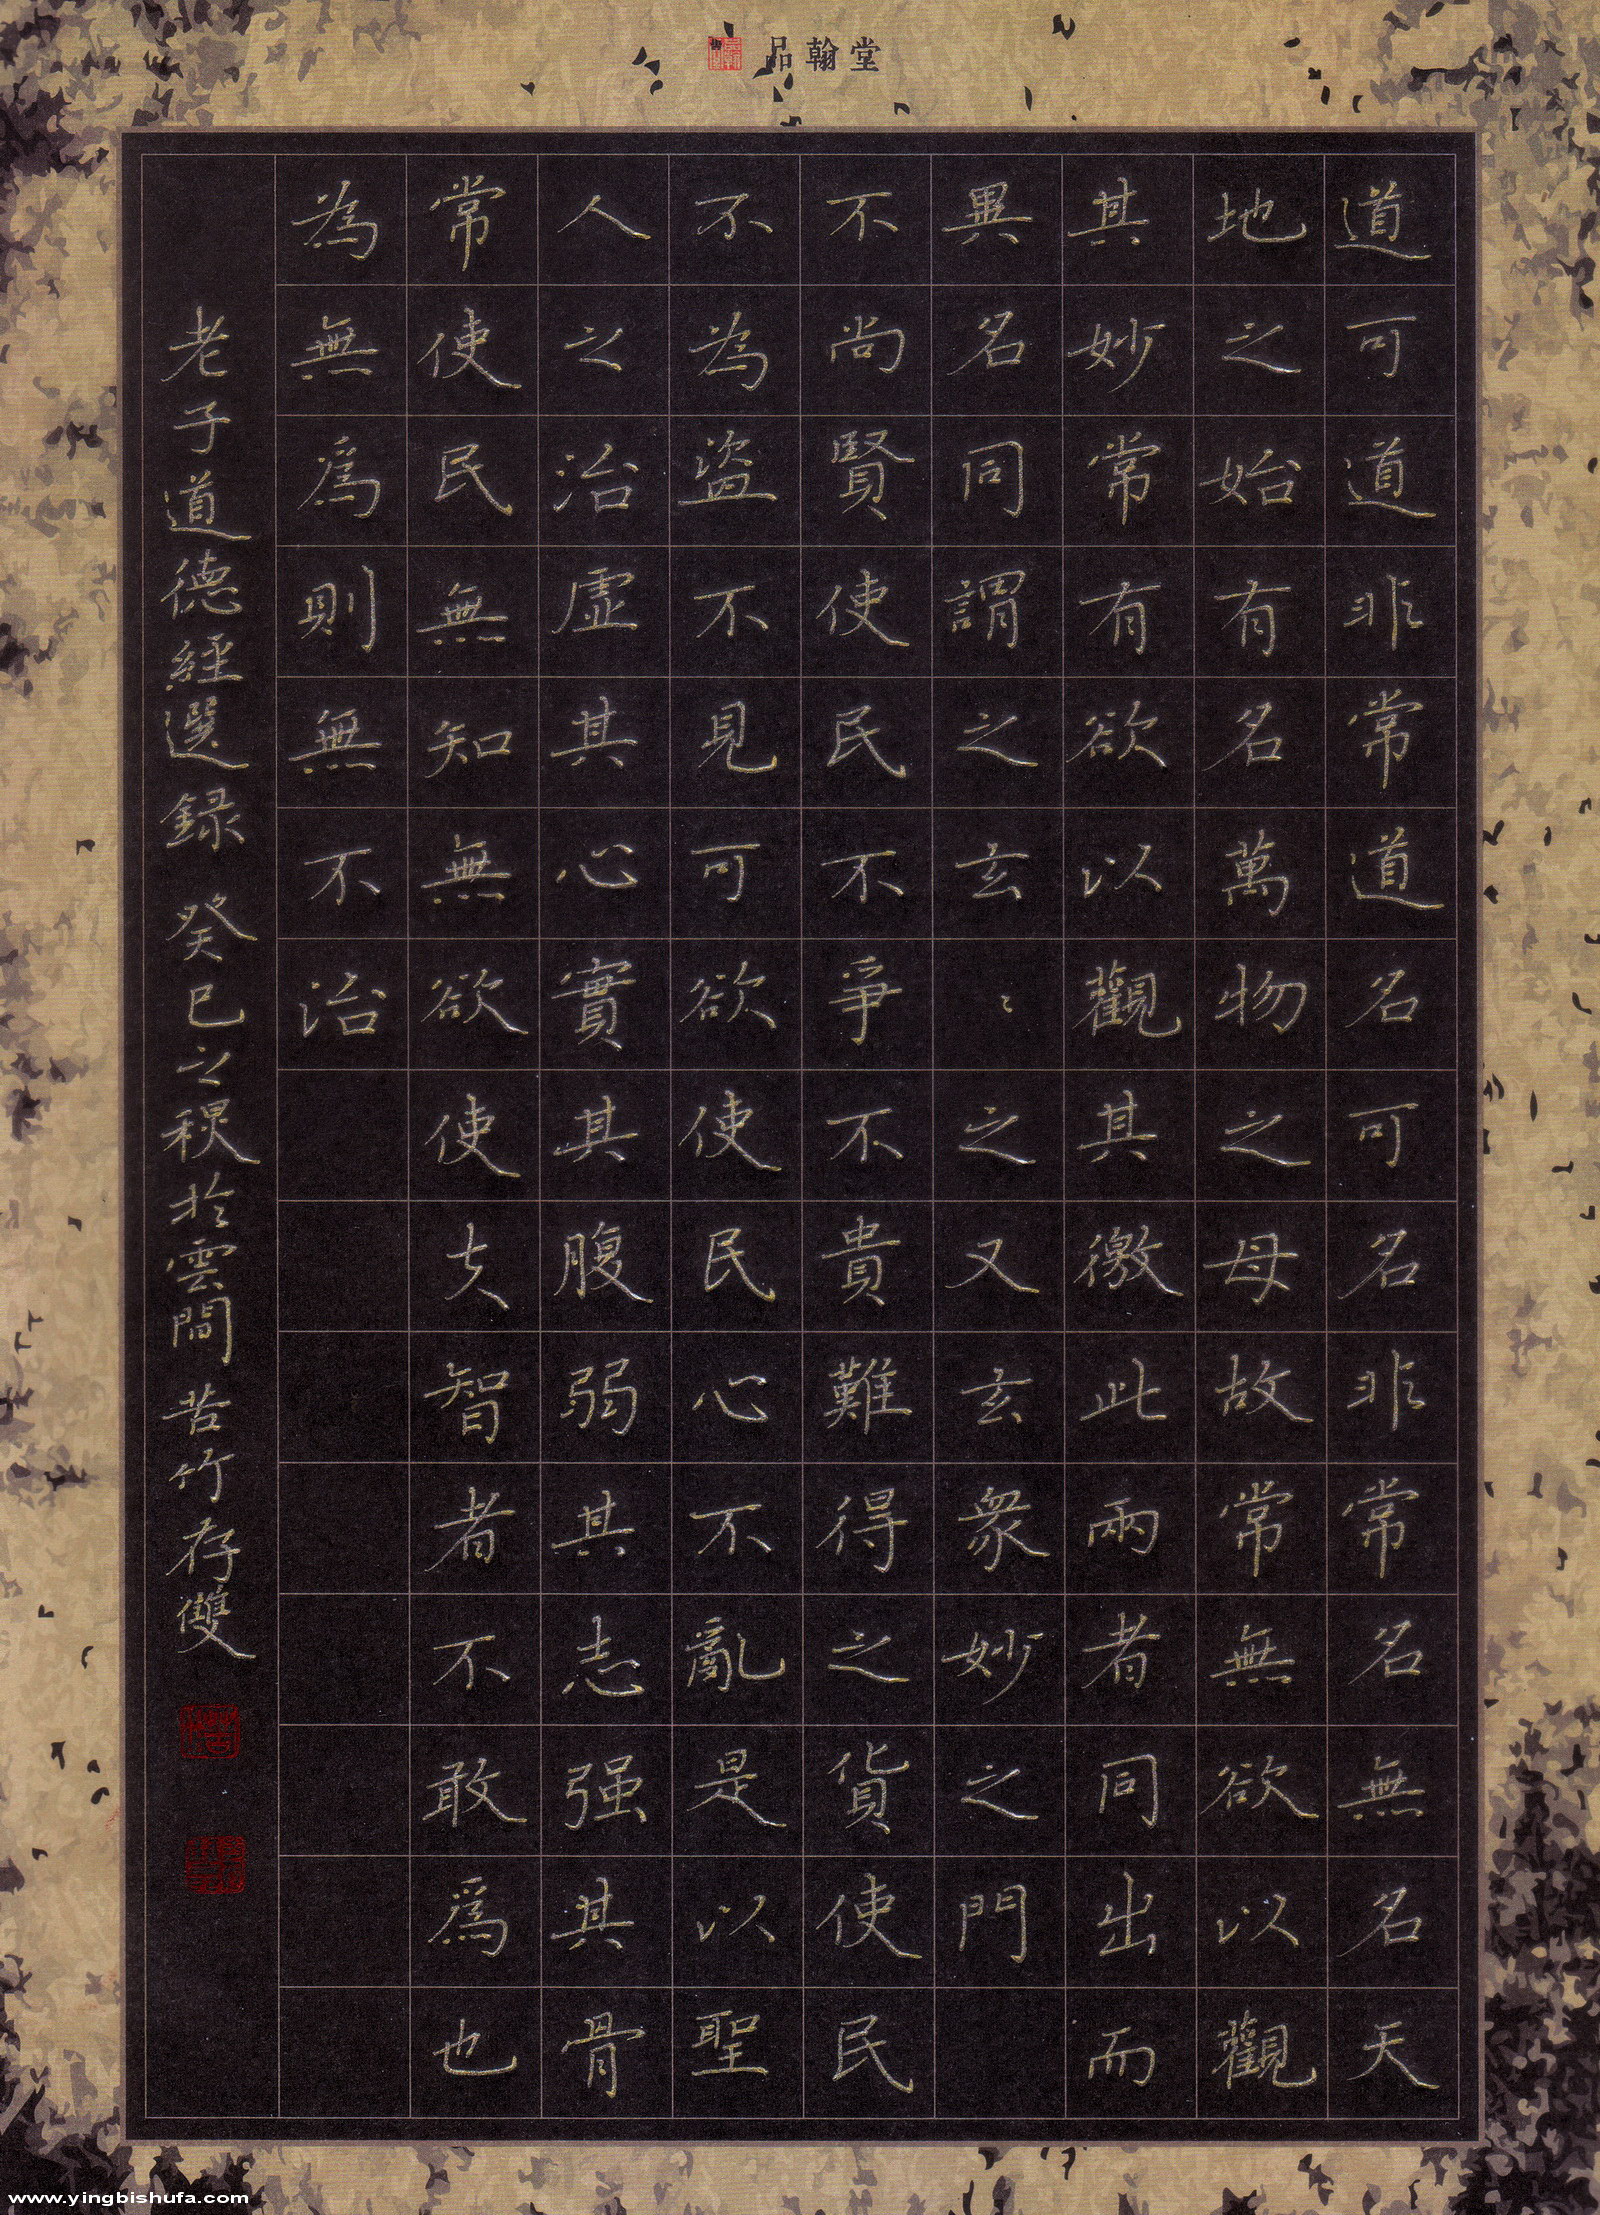 品翰堂
道可道非常道名可名非常名無名天
地之始有名萬物之母故常無欲以觀
其妙常有欲以觀其徼此兩者同出而
異名同謂之玄〻之又玄衆妙之門
不尚賢使民不爭不貴難得之貨使民
不為盜不見可欲使民心不亂是以聖
人之治虛其心實其腹弱其志强其骨
常使民無知無欲使夫智者不敢爲也
為無爲則無不治
老子道德經選録 癸巳之秋於雲間苦竹存雙
www.yingbishufa.com